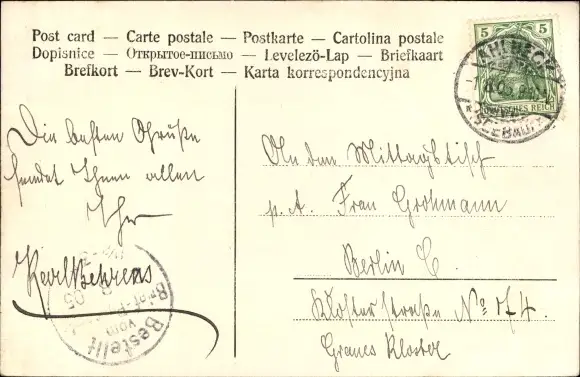 Post card — Carte postale — Postkarte — Cartolina postale
Dopisnice — Открытое-письмо — Levelező-Lap — Briefkaart
Brefkort — Brev-Kort — Karta korrespondencyjna
5 5
DEUTSCHES REICH
AHLBECK
SEEBAD
Die besten Grüße
sendet Ihnen allen
Ihr
Karl Behrens
Bestellt
vom
05
An den Mittagstisch
p. A. Frau Grohmann
Berlin C.
Klosterstraße No 74.
Graues Kloster